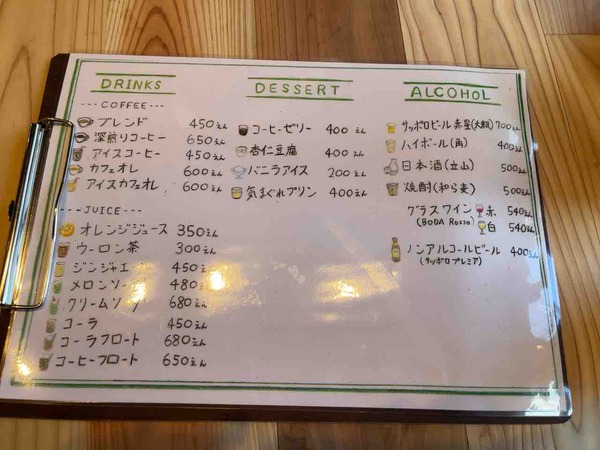 DRINKS
---COFFEE---
ブレンド 450えん
深煎りコーヒー 650えん
アイスコーヒー 450えん
カフェオレ 600えん
アイスカフェオレ 600えん
---JUICE---
オレンジジュース 350えん
ウーロン茶 300えん
ジンジャエ 450えん
メロンソーダ 480
クリームソーダ 680えん
コーラ 450えん
コーラフロート 680えん
コーヒーフロート 650えん
DESSERT
コーヒーゼリー 400えん
杏仁豆腐 400えん
バニラアイス 200えん
気まぐれプリン 400えん
ALCOHOL
サッポロビール赤星(大瓶) 700えん
ハイボール(角) 400えん
日本酒(立山) 500えん
焼酎(和ら麦) 500えん
グラスワイン 赤 540えん
(BODA Rosso) 白 540えん
ノンアルコールビール 400えん
(サッポロプレミア)